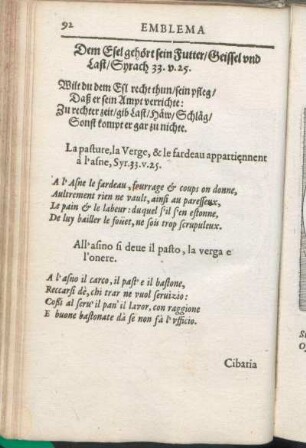 92
EMBLEMA
Dem Esel gehört sein Futter/Geissel vnd
Last/Syrach 33. v. 25.
Wilt du dem Esl recht thun/sein pfleg/
Daß er sein Ampt verrichte:
Zu rechter zeit/gib Last/Häw/Schläg/
Sonst kompt er gar zu nichte.
La pasture, la Verge, & le fardeau appartiennent
à l'asne, Syr. 33. v. 25.
A l'Asne le fardeau, fourrage & coups on donne,
Aultrement rien ne vault, ainsi au paresseux,
Le pain & le labeur: duquel s'il s'en estonne,
De luy bailler le fouët, ne sois trop scrupuleux.
All'asino si deue il pasto, la verga e
l'onere.
A l'asno il carco, il past' e il bastone,
Recarsi dè, chi trar ne vuol seruizio:
Cosi al seru' il pan' il lauor, con raggione
E buone bastonate dà se non fà l'vfficio.
Cibaria